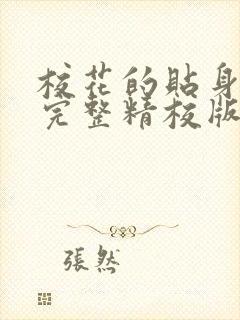 校花的貼身
完整精校版
張然